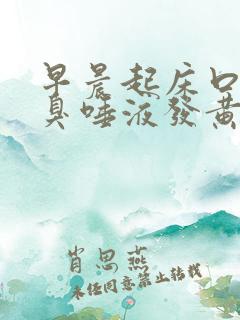 早晨起床口
臭唾液發黃
肖思燕
未经同意禁止转载